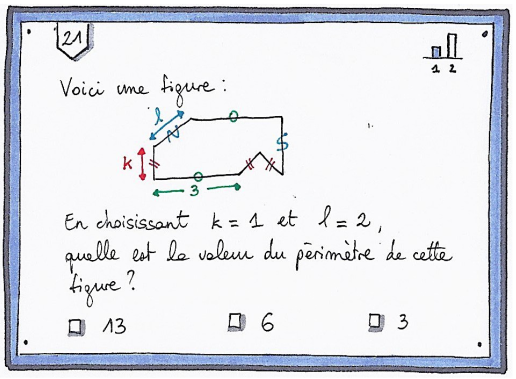 21
1 2
Voici une figure :
l
k
3
En choisissant k = 1 et l = 2,
quelle est la valeur du périmètre de cette
figure ?
13 6 3